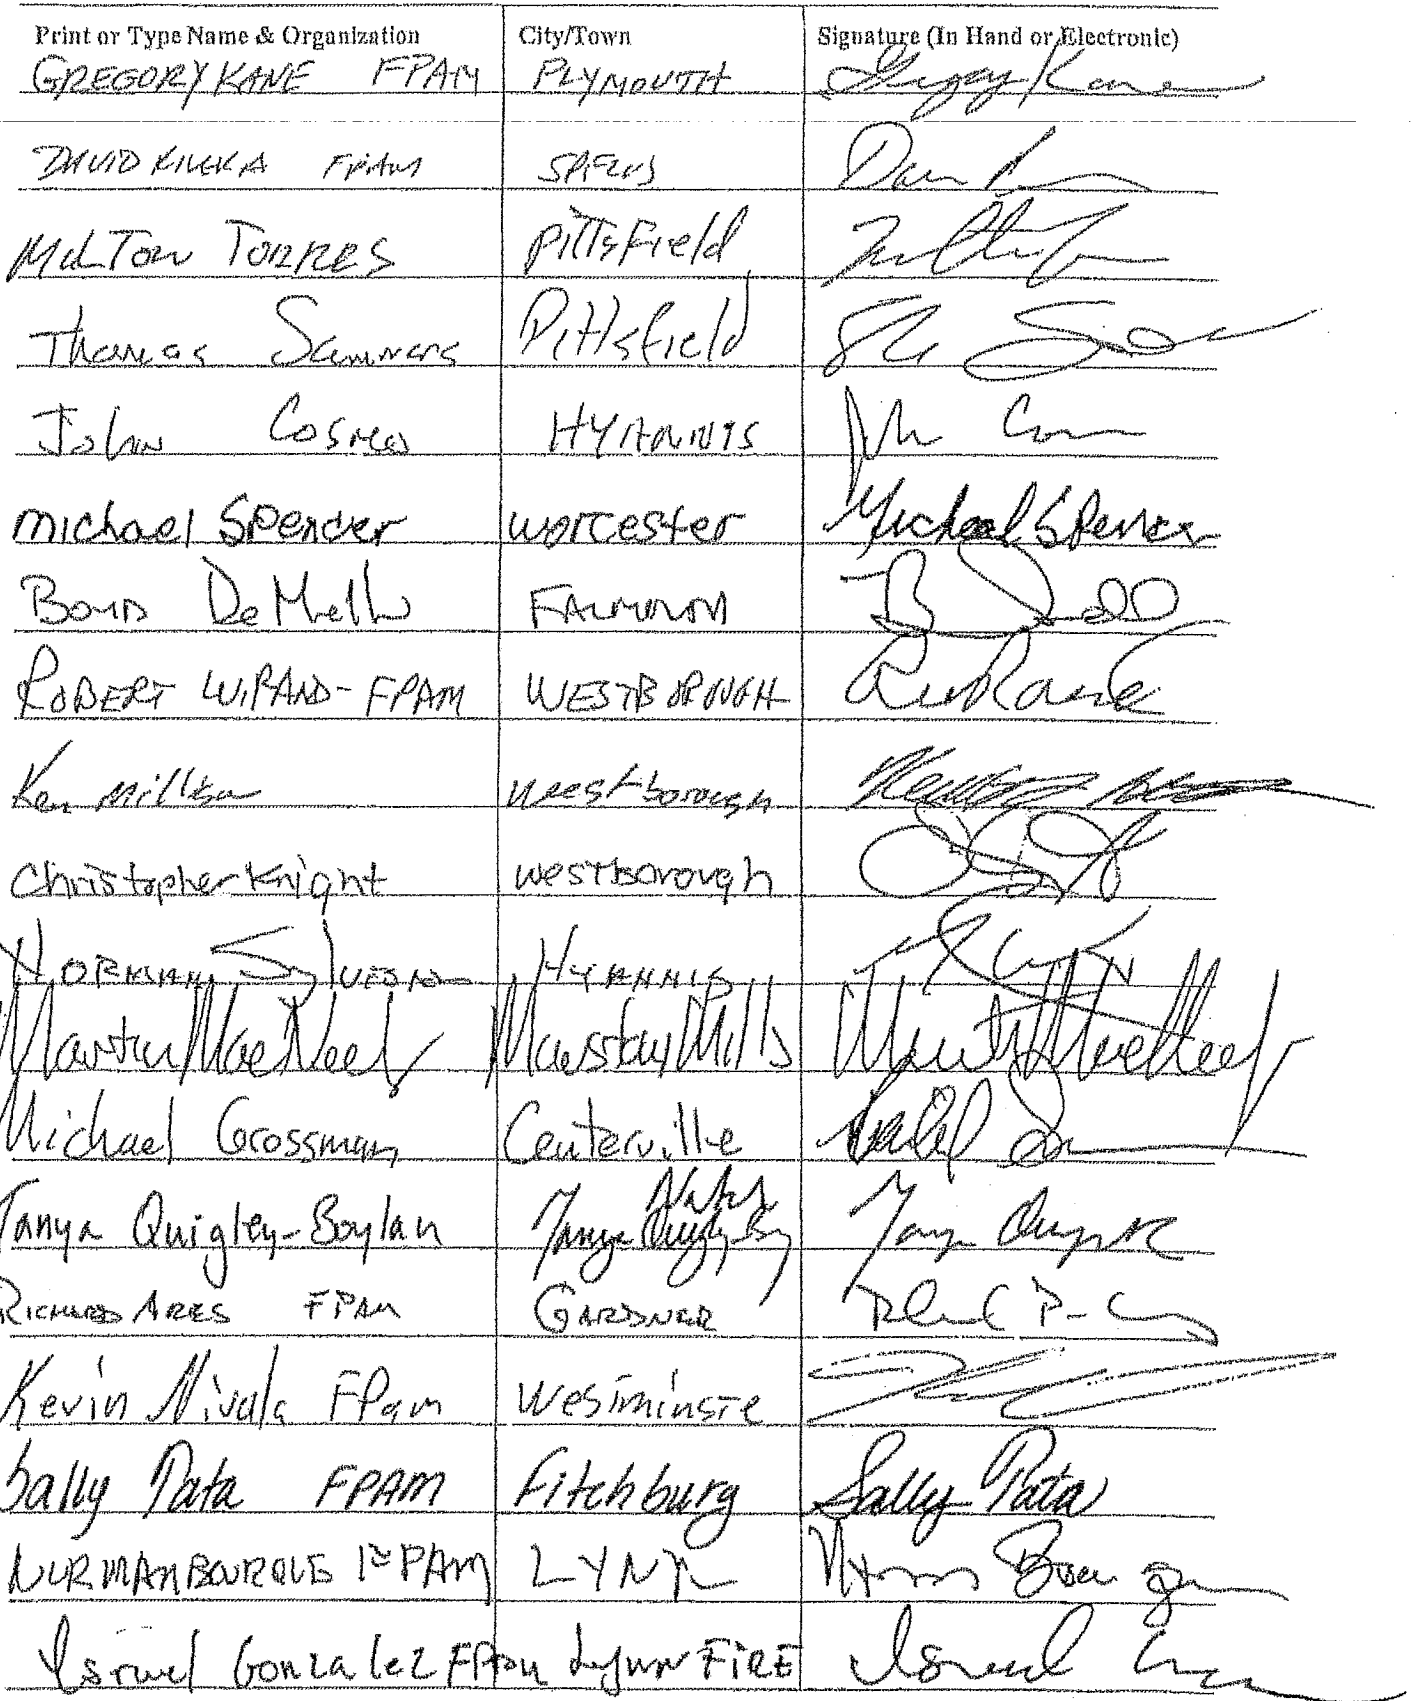 Print or Type Name & Organization City/Town Signature (In Hand or Electronic)
GREGORY KANE FPAM PLYMOUTH Gregory Kane
DAVID FPAM
MILTON TORRES PITTSField
Thomas Sammons Pittsfield
John Cosmo HYANNIS
michael Spencer worcester Michael Spencer
BOYD DeMello FALMOUTH
ROBERT WIRAND-FPAM WESTBOROUGH
Ken westborough
Christopher Knight westborough
NORMAN SYLVESTER HYANNIS
Martin MacNeely Marstons Mills Martin MacNeely
Michael Grossman Centerville
Natick
Tanya Quigley-Boylan Tanya Quigley-Boy Tanya
RICHARD ARES FPAM GARDNER
Kevin Nivala FPam Westminste
Sally Pata FPAM Fitchburg Sally Pata
NORMAN BOURQUE FPAM LYNN
Israel Gonzalez FPAM Lynn FIRE Israel